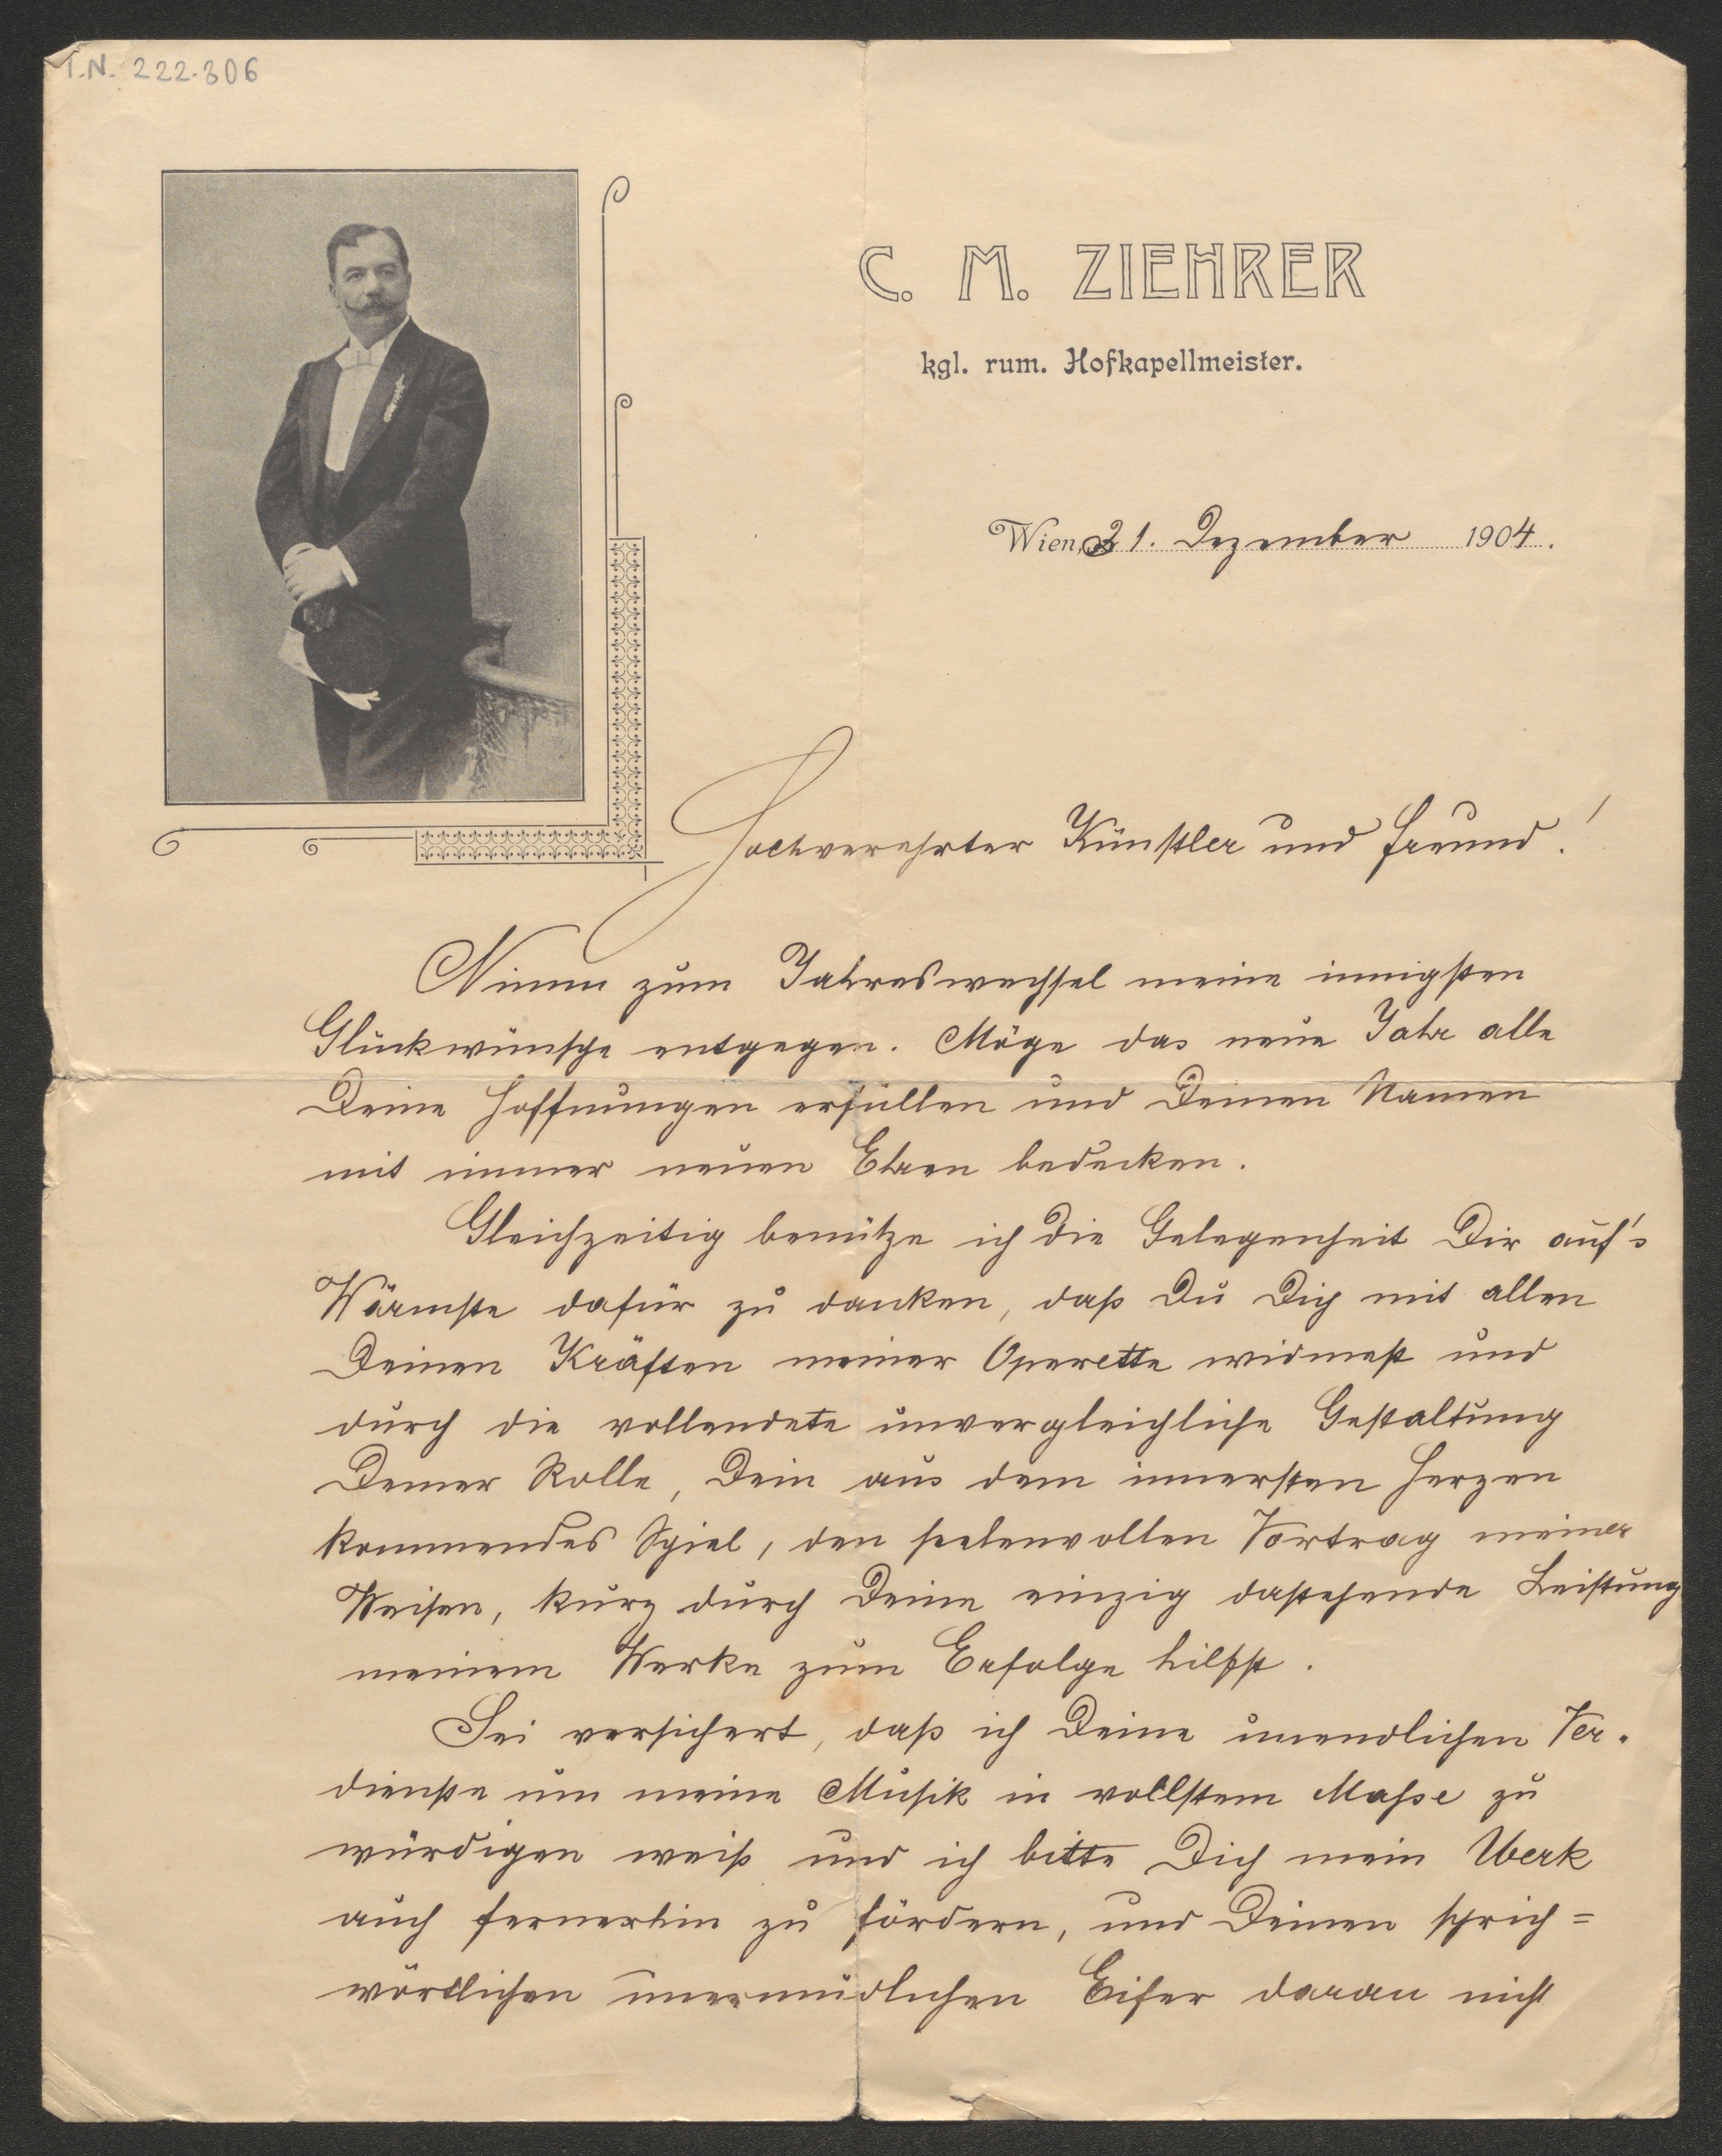 I.N. 222.306
C. M. ZIEHRER
kgl. rum. Hofkapellmeister.
Wien, 21. Dezember 1904.
Hochverehrter Künstler und Freund!
Nimm zum Jahreswechsel meine innigsten
Glückwünsche entgegen. Möge das neue Jahr alle
Deine Hoffnungen erfüllen und Deinen Namen
mit immer neuen Ehren bedecken.
Gleichzeitig benütze ich die Gelegenheit Dir auf's
Wärmste dafür zu danken, daß Du Dich mit allen
Deinen Kräften meiner Operette widmest und
durch die vollendete unvergleichliche Gestaltung
Deiner Rolle, Dein aus dem innersten Herzen
kommendes Spiel, den seelenvollen Vortrag meiner
Weisen, kurz durch Deine einzig dastehende Leistung
meinem Werke zum Erfolge hilfst.
Sei versichert, daß ich Deine unendlichen Ver-
dienste um meine Musik in vollstem Maße zu
würdigen weiß und ich bitte Dich mein Werk
auch fernerhin zu fördern, und Deinen sprich=
wörtlichen unermüdlichen Eifer daran nicht